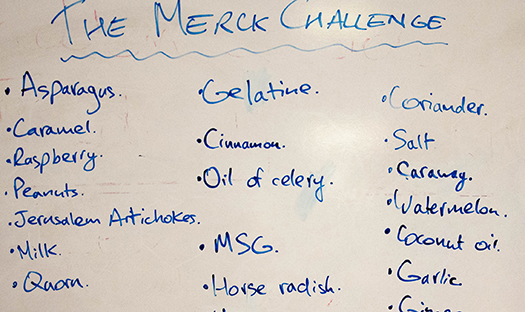 THE MERCK CHALLENGE
• Asparagus.
• Caramel.
• Raspberry.
• Peanuts.
• Jerusalem Artichokes.
• Milk.
• Quorn.
• Gelatine.
• Cinnamon.
• Oil of celery.
• MSG.
• Horse radish.
• Coriander.
• Salt
• Caraway.
• Watermelon.
• Coconut oil.
• Garlic